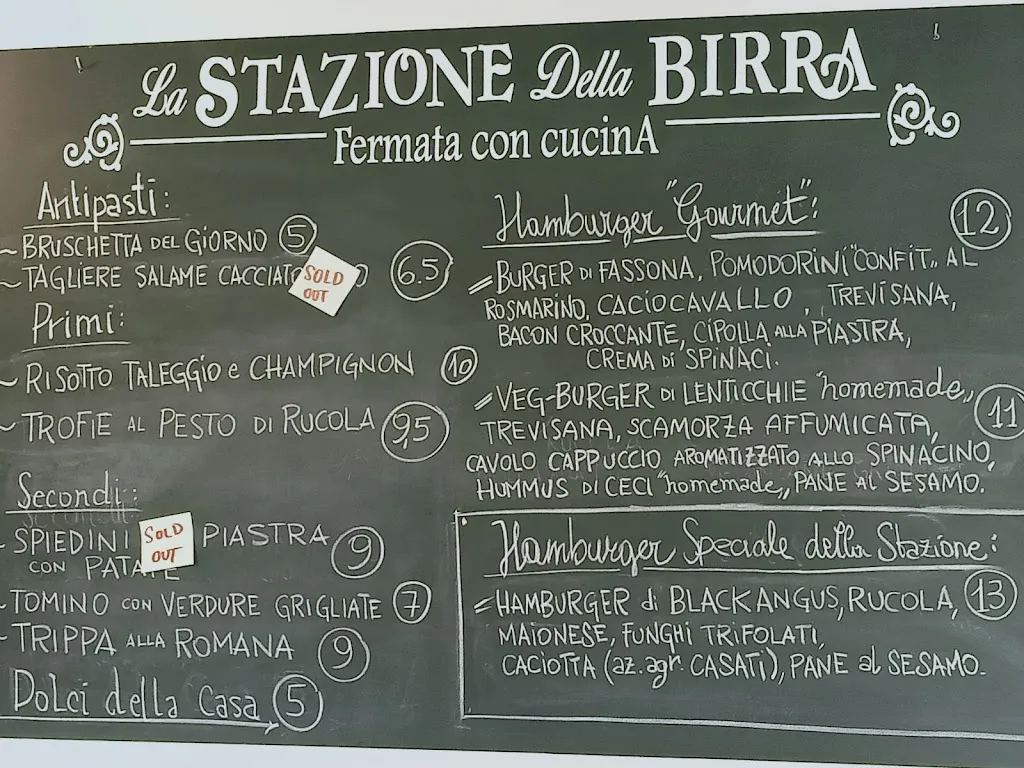 La STAZIONE Della BIRRA
Fermata con cucinA
Antipasti:
~ BRUSCHETTA DEL GIORNO 5
~ TAGLIERE SALAME 6.5
SOLD
OUT
Primi:
~ RISOTTO TALEGGIO e CHAMPIGNON 10
~ TROFIE AL PESTO DI RUCOLA 9,5
Secondi:
- SPIEDINI PIASTRA 9
CON
SOLD
OUT
- TOMINO CON VERDURE GRIGLIATE 7
- TRIPPA ALLA ROMANA 9
Dolci della Casa 5
Hamburger "Gourmet": 12
= BURGER DI FASSONA, POMODORINI "CONFIT„ AL
ROSMARINO, CACIOCAVALLO, TREVISANA,
BACON CROCCANTE, CIPOLLA ALLA PIASTRA,
CREMA DI SPINACI.
= VEG-BURGER DI LENTICCHIE "homemade„, 11
TREVISANA, SCAMORZA AFFUMICATA,
CAVOLO CAPPUCCIO AROMATIZZATO ALLO SPINACINO,
HUMMUS DI CECI "homemade„, PANE AL SESAMO.
Hamburger Speciale della Stazione:
= HAMBURGER di BLACK ANGUS, RUCOLA, 13
MAIONESE, FUNGHI TRIFOLATI,
CACIOTTA (az. agr. CASATI), PANE al SESAMO.